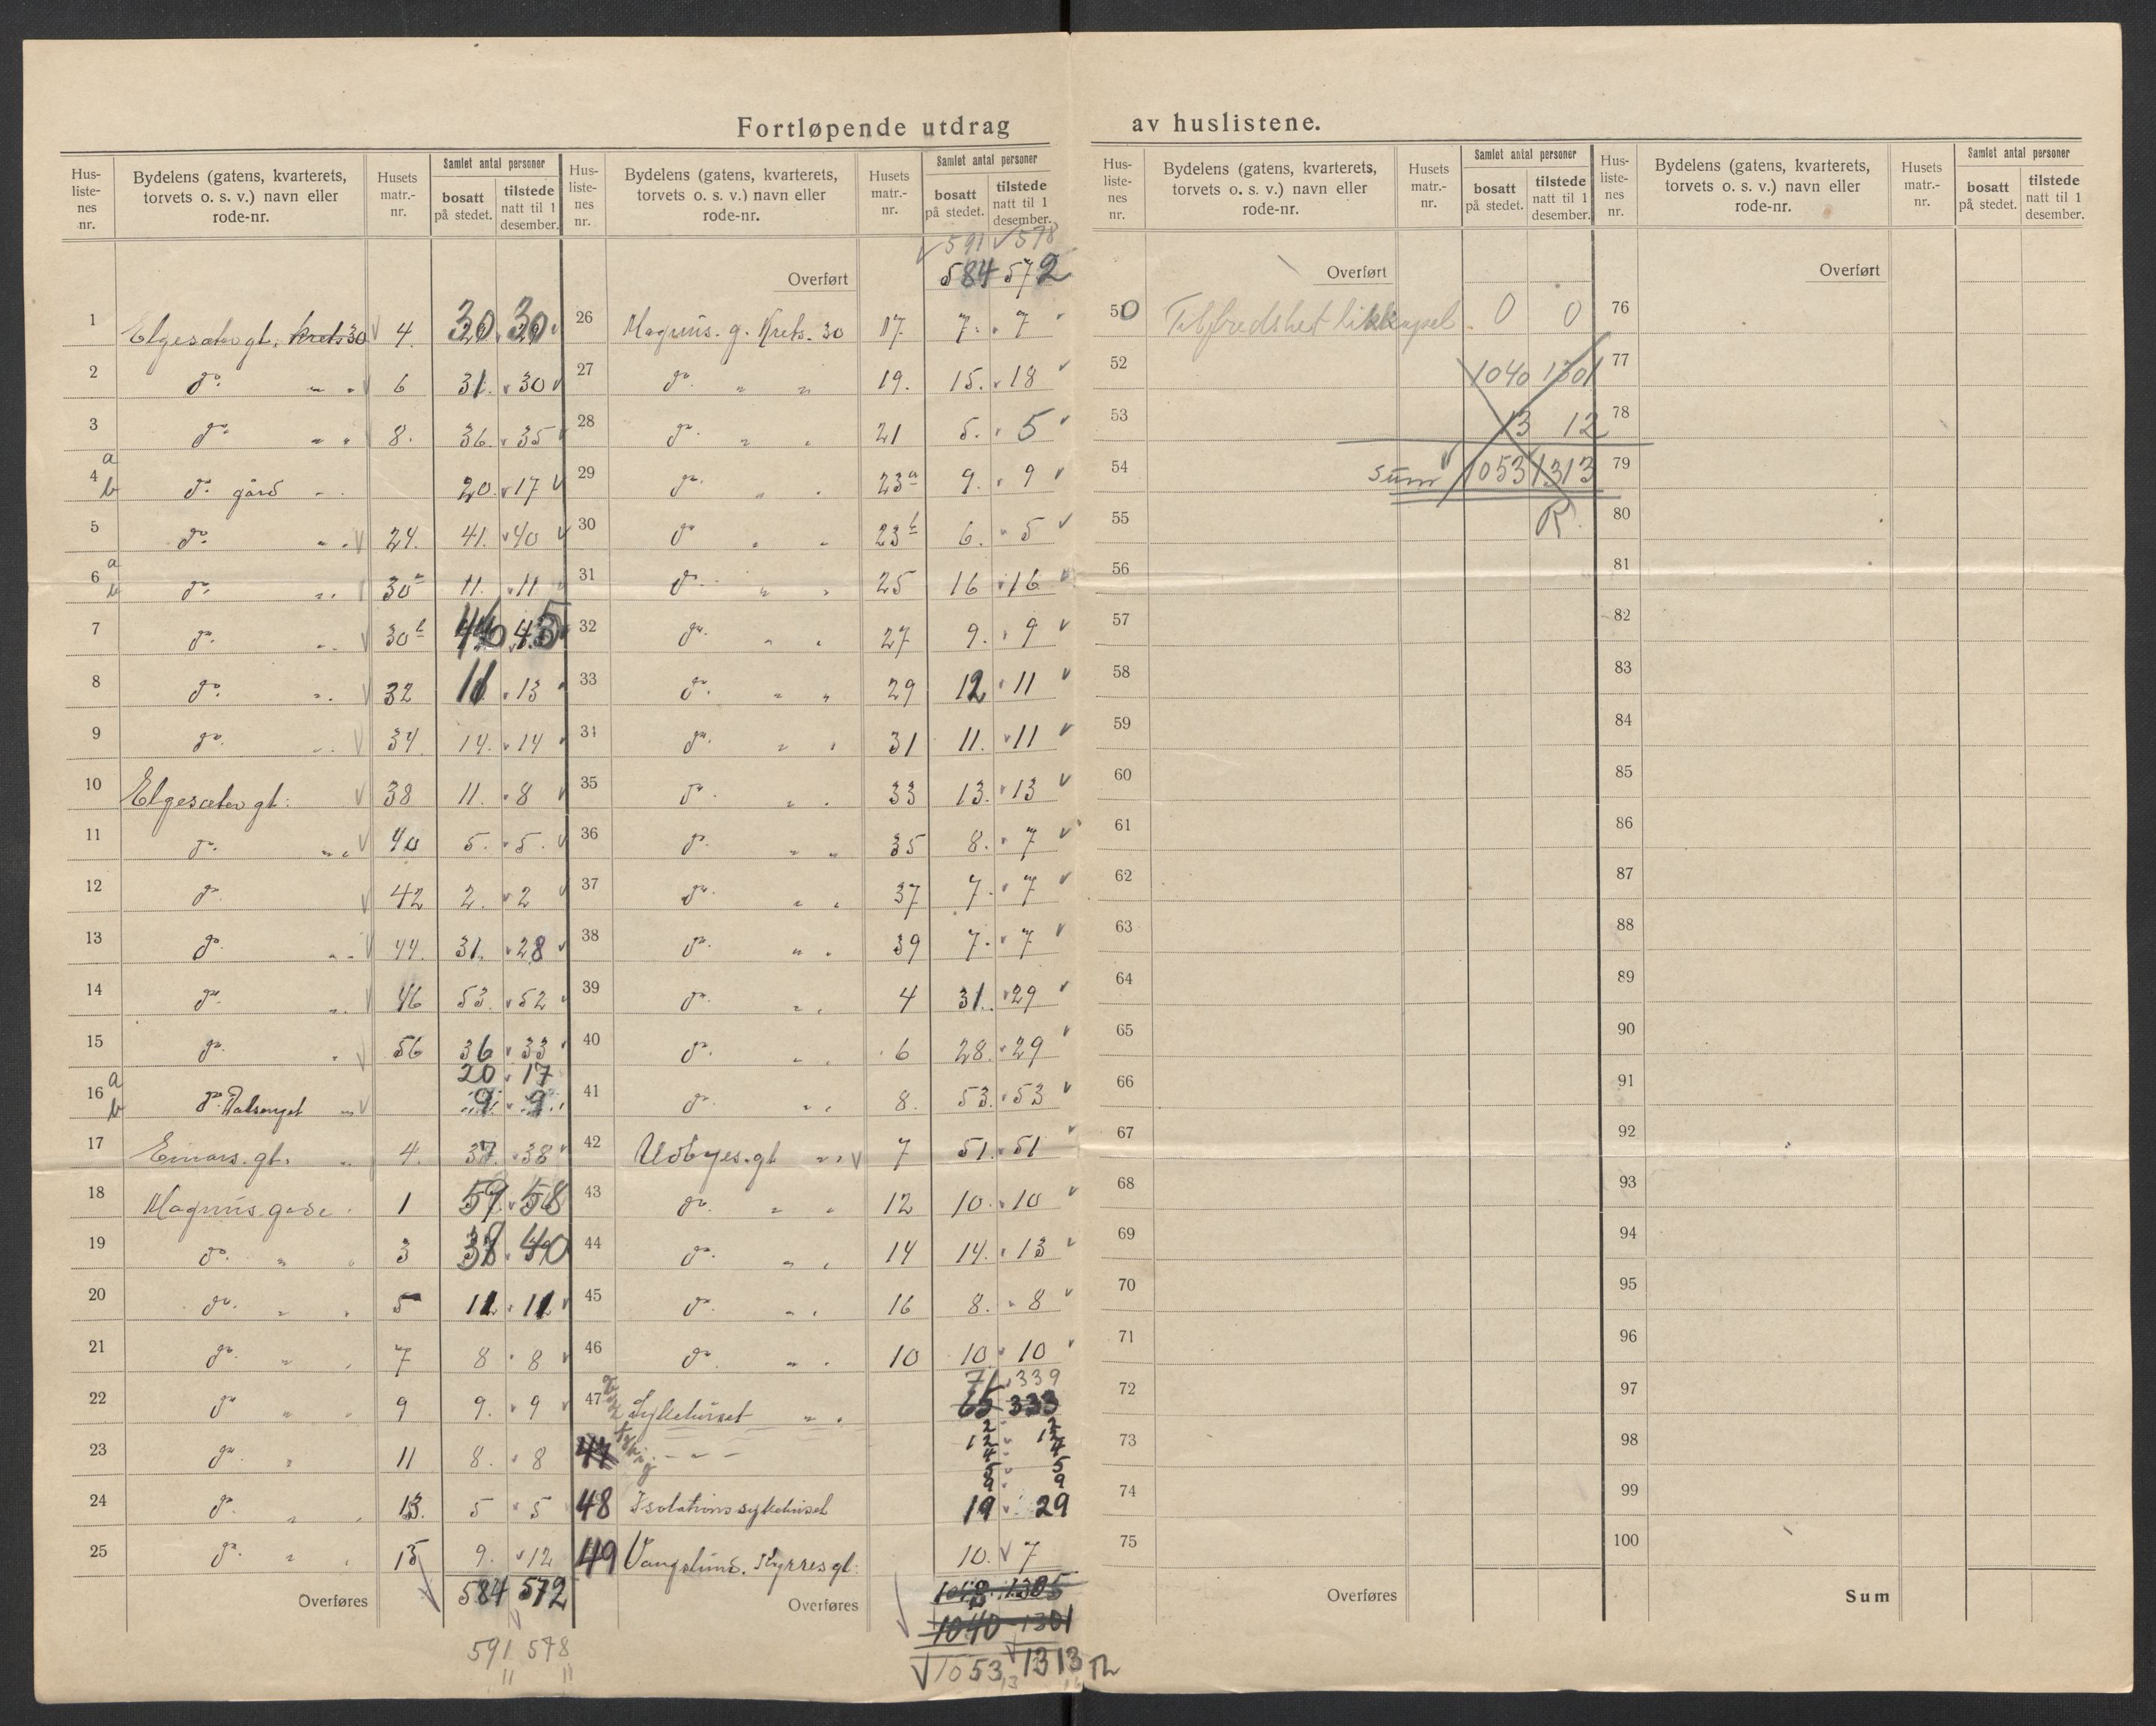 Fortløpende utdrag av huslistene.
Hus-liste-nes nr. | Bydelens (gatens, kvarterets, torvets o. s. v.) navn eller rode-nr. | Husets matr.-nr. | Samlet antal personer | bosatt på stedet. | tilstede natt til 1 desember.
Hus-liste-nes nr. | Bydelens (gatens, kvarterets, torvets o. s. v.) navn eller rode-nr. | Husets matr.-nr. | Samlet antal personer | bosatt på stedet. | tilstede natt til 1 desember.
Hus-liste-nes nr. | Bydelens (gatens, kvarterets, torvets o. s. v.) navn eller rode-nr. | Husets matr.-nr. | Samlet antal personer | bosatt på stedet. | tilstede natt til 1 desember.
Hus-liste-nes nr. | Bydelens (gatens, kvarterets, torvets o. s. v.) navn eller rode-nr. | Husets matr.-nr. | Samlet antal personer | bosatt på stedet. | tilstede natt til 1 desember.
1 Elgesæter gt. krets 30 4. 30 30
2 do. " " 6 31. 30
3 do. " " 8. 36. 35
4 a b do. gård 20. 17
5 do. " " 24. 41. 40
6 a b do. " " 30a 11. 11
7 do. " " 30b 46 45
8 do. " " 32 11 13
9 do. " " 34. 14. 14
10 Elgesæter gt: 38 11. 8
11 do. " " 40 5. 5.
12 do. 42 2. 2
13 do. " " 44. 31. 28
14 do. " 46 53. 52
15 do. " 56 36 33
20 17
16 a b do. " 9 9
17 Einars. gt. " 4. 37. 38
18 Magnus. gade. 1 59 58
19 do. " " 3 38 40
20 do. " " 5 11 11
21 do. " " 7 8 8
22 do " " 9 9. 9
23 do. " 11 8. 8
24 do. " " 13. 5 5
25 do. " " 15 9. 12
Overføres 584 572
591 578
591 578
Overført 584 572
26 Magnus. g. Krets. 30 17. 7. 7
27 do. " " 19. 15. 18
28 do. " " 21 5. 5
29 do. " " 23a 9. 9
30 do " " 23b 6. 5
31 do. " " 25 16 16
32 do. " " 27 9. 9
33 do. " " 29 12 11
34 do. " " 31 11. 11
35 do. " " 33 13. 13
36 do. " " 35 8. 7
37 do. " " 37 7. 7
38 do. " " 39 7. 7
39 do. " " 4 31. 29
40 do. " " 6 28. 29
41 do. " " 8. 53. 53
42 Udbyes. gt " " 7 51. 51
43 do. " " 12 10. 10
44 do. " " 14 14. 13
45 do. " " 16 8. 8
46 do. " " 10 10 10
71 339
47 Sykehuset " " 65 333
47 " - " -
48 Isolationssykehuset 19 29
49 Vangslund. Kyrres gt: 10. 7
Overføres
1040 1301
1053 1313
Overført
50 Tilfredshet likkapel. 0 0
52 1040 1301
53 13 12
54 Sum 1053 1313
55 R.
56
57
58
59
60
61
62
63
64
65
66
67
68
69
70
71
72
73
74
75
Overføres
Overført
76
77
78
79
80
81
82
83
84
85
86
87
88
89
90
91
92
93
94
95
96
97
98
99
100
Sum